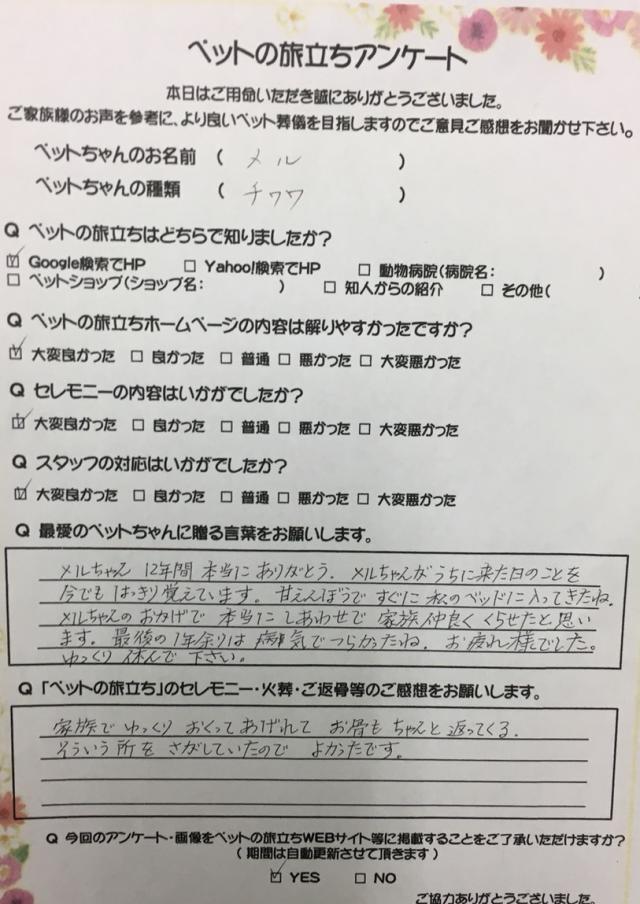 ペットの旅立ちアンケート
本日はご用命いただき誠にありがとうございました。
ご家族様のお声を参考に、より良いペット葬儀を目指しますのでご意見ご感想をお聞かせ下さい。
ペットちゃんのお名前 ( メル )
ペットちゃんの種類 ( チワワ )
Q ペットの旅立ちはどちらで知りましたか?
☑ Google検索でHP □ Yahoo!検索でHP □ 動物病院(病院名: )
□ ペットショップ(ショップ名: ) □ 知人からの紹介 □ その他(
Q ペットの旅立ちホームページの内容は解りやすかったですか?
☑ 大変良かった □ 良かった □ 普通 □ 悪かった □ 大変悪かった
Q セレモニーの内容はいかがでしたか?
☑ 大変良かった □ 良かった □ 普通 □ 悪かった □ 大変悪かった
Q スタッフの対応はいかがでしたか?
☑ 大変良かった □ 良かった □ 普通 □ 悪かった □ 大変悪かった
Q 最愛のペットちゃんに贈る言葉をお願いします。
メルちゃん 12年間 本当に ありがとう. メルちゃんがうちに来た日のことを
今でも はっきり覚えています。甘えんぼうで すぐに 私のベッドに入ってきたね.
メルちゃんのおかげで 本当に しあわせで 家族 仲良く くらせたと思い
ます。最後の1年余りは 病気で つらかったね. お疲れ様でした。
ゆっくり 休んで 下さい。
Q 「ペットの旅立ち」のセレモニー・火葬・ご返骨等のご感想をお願いします。
家族で ゆっくり おくって あげれて お骨も ちゃんと 返ってくる.
そういう 所を さがしていたので よかったです。
Q 今回のアンケート・画像をペットの旅立ちWEBサイト等に掲載することをご了承いただけますか?
( 期間は自動更新させて頂きます )
☑ YES □ NO
ご協力ありがとうございました。